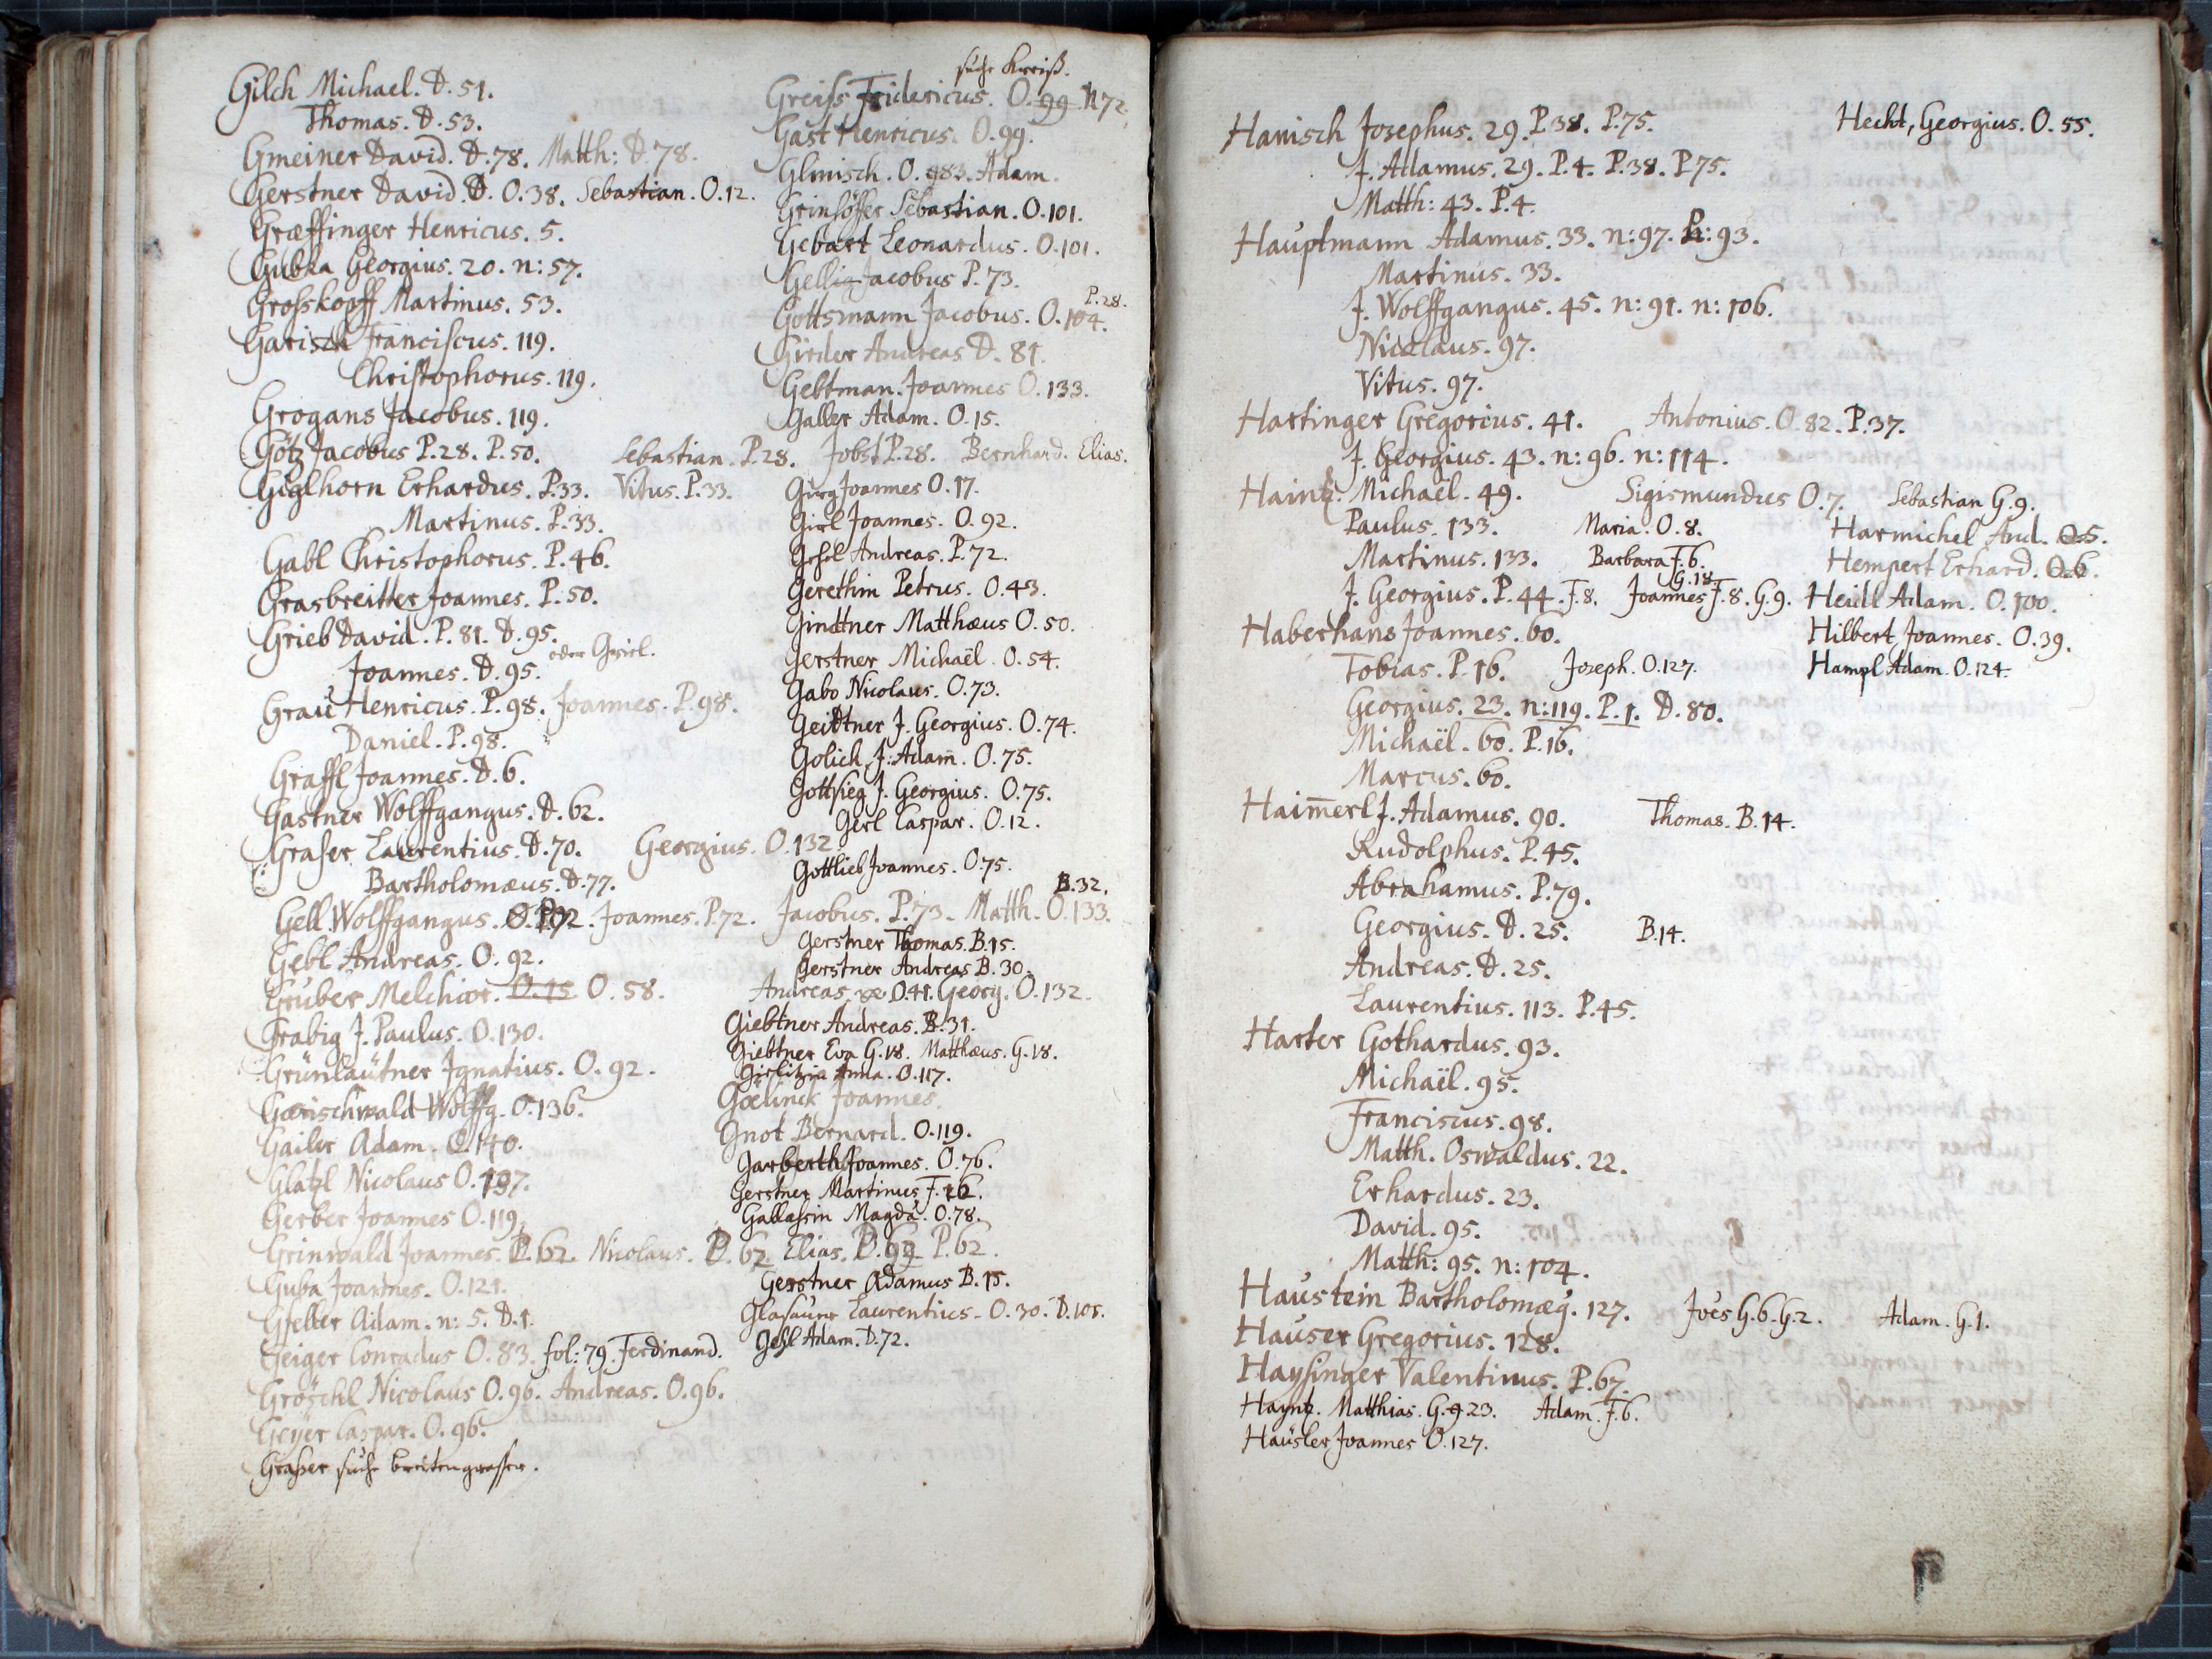 Gilch Michael. D. 51.
Thomas. D. 53.
Gmeiner David. D. 78. Matth: D. 78.
Gerstner David. D. O. 38. Sebastian. O. 12.
Græffinger Henricus. 5.
Gubka Georgius. 20. n: 57.
Grosskopff Martinus. 53.
Garisch Franciscus. 119.
Christophorus. 119.
Grogans Jacobus. 119.
Götz Jacobus P. 28. P. 50. Sebastian. P. 28. Jobst P. 28. Bernhard. Elias.
Giglhorn Erhardus. P. 33. Vitus. P. 33.
Martinus. P. 33.
Gabl Christophorus. P. 46.
Grasbreitter Joannes. P. 50.
Grieb David. P. 81. D. 95.
Joannes. D. 95. oder Griel.
Graŭ Henricus. P. 98. Joannes. P. 98.
Daniel. P. 98.
Graffl Joannes. D. 6.
Gastner Wolffgangus. D. 62.
Graser Laurentius. D. 70. Georgius. O. 132
Bartholomæus. D. 77.
Gell Wolffgangus. Joannes. P. 72. Jacobus. P. 73. Matth. O. 133. B. 32.
Gebl Andreas. O. 92.
Gruber Melchior. O. 15 O. 58.
Grabig J. Paulus. O. 130.
Grünlaŭtner Ignatius. O. 92.
Gærischwald Wolffg. O. 136.
Gailer Adam. O. 140.
Glatzl Nicolaus O. 197.
Gerber Joannes O. 119.
Grinwald Joannes. P. 62. Nicolaus. P. 62 Elias. P. 62.
Guba Joannes. O. 121.
Gfeller Adam. n: 5. D. 1.
Geiger Conradus O. 83. fol: 79. Ferdinand.
Gröschl Nicolaŭs O. 96. Andreas. O. 96.
Geÿer Caspar. O. 96.
Graser suche breitengrasser.
suche Kreiß.
Greiss Fridericus. O. 99 N 72.
Gast Henricus. O. 99.
Glmisch. O. 983. Adam.
Grinhöffer Sebastian. O. 101.
Gebart Leonardus. O. 101.
Gellig Jacobus P. 73.
Gottsmann Jacobus. O. 104. P. 28.
Girder Andreas D. 81.
Gebtman. Joannes O. 133.
Galler Adam. O. 15.
Gurg Joannes O. 17.
Girl Joannes. O. 92.
Andreas. P. 72.
Gerethin Petrus. O. 43.
Gindtner Matthæus O. 50.
Gerstner Michaël. O. 54.
Gabo Nicolaus. O. 73.
Geidtner J. Georgius. O. 74.
Golich, J: Adam̄. O. 75.
Gottsieg J. Georgius. O. 75.
Gerl Caspar. O. 12.
Gottlieb Joannes. O. 75.
Gerstner Thomas. B. 15.
Gerstner Andreas B. 30.
Andreas. O. 41. Georg. O. 132.
Giebtner Andreas. B. 31.
Giebtner Eva G. 18. Matthæus. G. 18.
Girlitzin Anna. O. 117.
Gælinck Joannes.
Gnot Bernard. O. 119.
Garberth Joannes. O. 76.
Gerstner Martinus F. 16.
Gallassin Magda. O. 78.
Gerstner Adamus B. 15.
Glasaŭer Laurentius. O. 30. D. 101.
Adam. D. 72.
Hanisch Josephus. 29. P. 38. P. 75.
J. Adamus. 29. P. 4. P. 38. P 75.
Matth: 43. P. 4.
Haŭptmann Adamus. 33. n: 97. n: 93.
Martinus. 33.
J. Wolffgangus. 45. n: 91. n: 106.
Nicolaus. 97.
Vitus. 97.
Hartinger Gregorius. 41. Antonius. O. 82. P. 37.
J. Georgius. 43. n: 96. n: 114.
Haintz. Michaël. 49. Sigismundus O. 7. Sebastian G. 9.
Paulus. 133. Maria. O. 8.
Martinus. 133. Barbara F. 6.
J. Georgius. P. 44. F. 8. Joannes F. 8. G. 9. G. 18.
Haberhans Joannes. 60.
Tobias. P. 16. Joseph. O. 127.
Georgius. 23. n: 119. P. 1. D. 80.
Michaël. 60. P. 16.
Marcus. 60.
Haim̄erl J. Adamus. 90. Thomas. B. 14.
Rudolphus. P. 45.
Abrahamus. P. 79.
Georgius. D. 25. B. 14.
Andreas. D. 25.
Laurentius. 113. P. 45.
Harter Gothardus. 93.
Michaël. 95.
Franciscus. 98.
Matth. Oswaldus. 22.
Erhardus. 23.
David. 95.
Matth: 95. n: 104.
Haŭstein Bartholomæg. 127. Joes G. 6. G. 2. Adam. G. 1.
Haŭser Gregorius. 128.
Haysinger Valentinus. P. 67.
Hayntz. Matthias. G. 9. 23. Adam. F. 6.
Haŭsler Joannes O. 127.
Hecht, Georgius. O. 55.
Harmichel And. O. 5.
Hempert Erhard. O. 6.
Heidl Adam. O. 100.
Hilbert Joannes. O. 39.
Hampl Adam. O. 124.